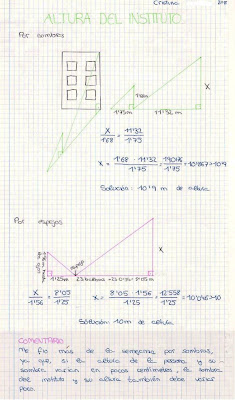 Cristina
ALTURA DEL INSTITUTO
Por sombras
X
1'68m
1'75m
11'32 m
X/1'68 = 11'32/1'75
X = 1'68 · 11'32/1'75 = 19'0176/1'75 = 10'867 ≈ 10'9
Solución: 10'9 m de altura
Por espejos
X
espejo
1'25m
8'05 m
X/1'56 = 8'05/1'25
X = 8'05 · 1'56/1'25 = 12'558/1'25 = 10'046 ≈ 10
Solución: 10m de altura
COMENTARIO
Me fío más de la semejanza por sombras,
ya que, si la altura de la persona y su
sombra varían en pocos centímetros, la sombra
del instituto y su altura también debe variar
poco.